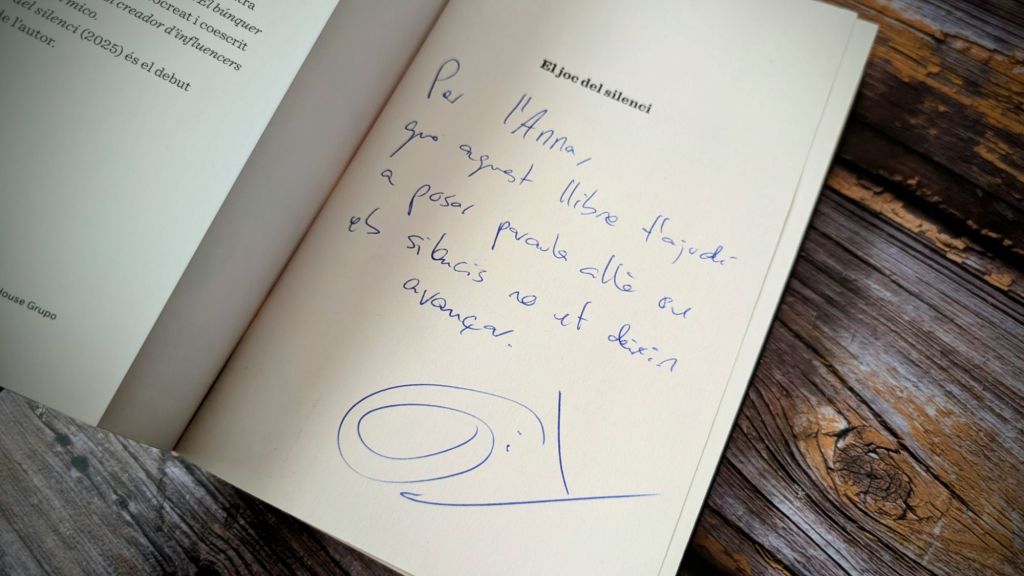 El búnquer
creat i coescrit
mico.
creador d'influencers
del silenci (2025) és el debut
de l'autor.
House Grupo
El joc del silenci
Per l'Anna,
que aquest llibre t'ajudi
a posar paraula allà on
els silencis no et deixin
avançar.